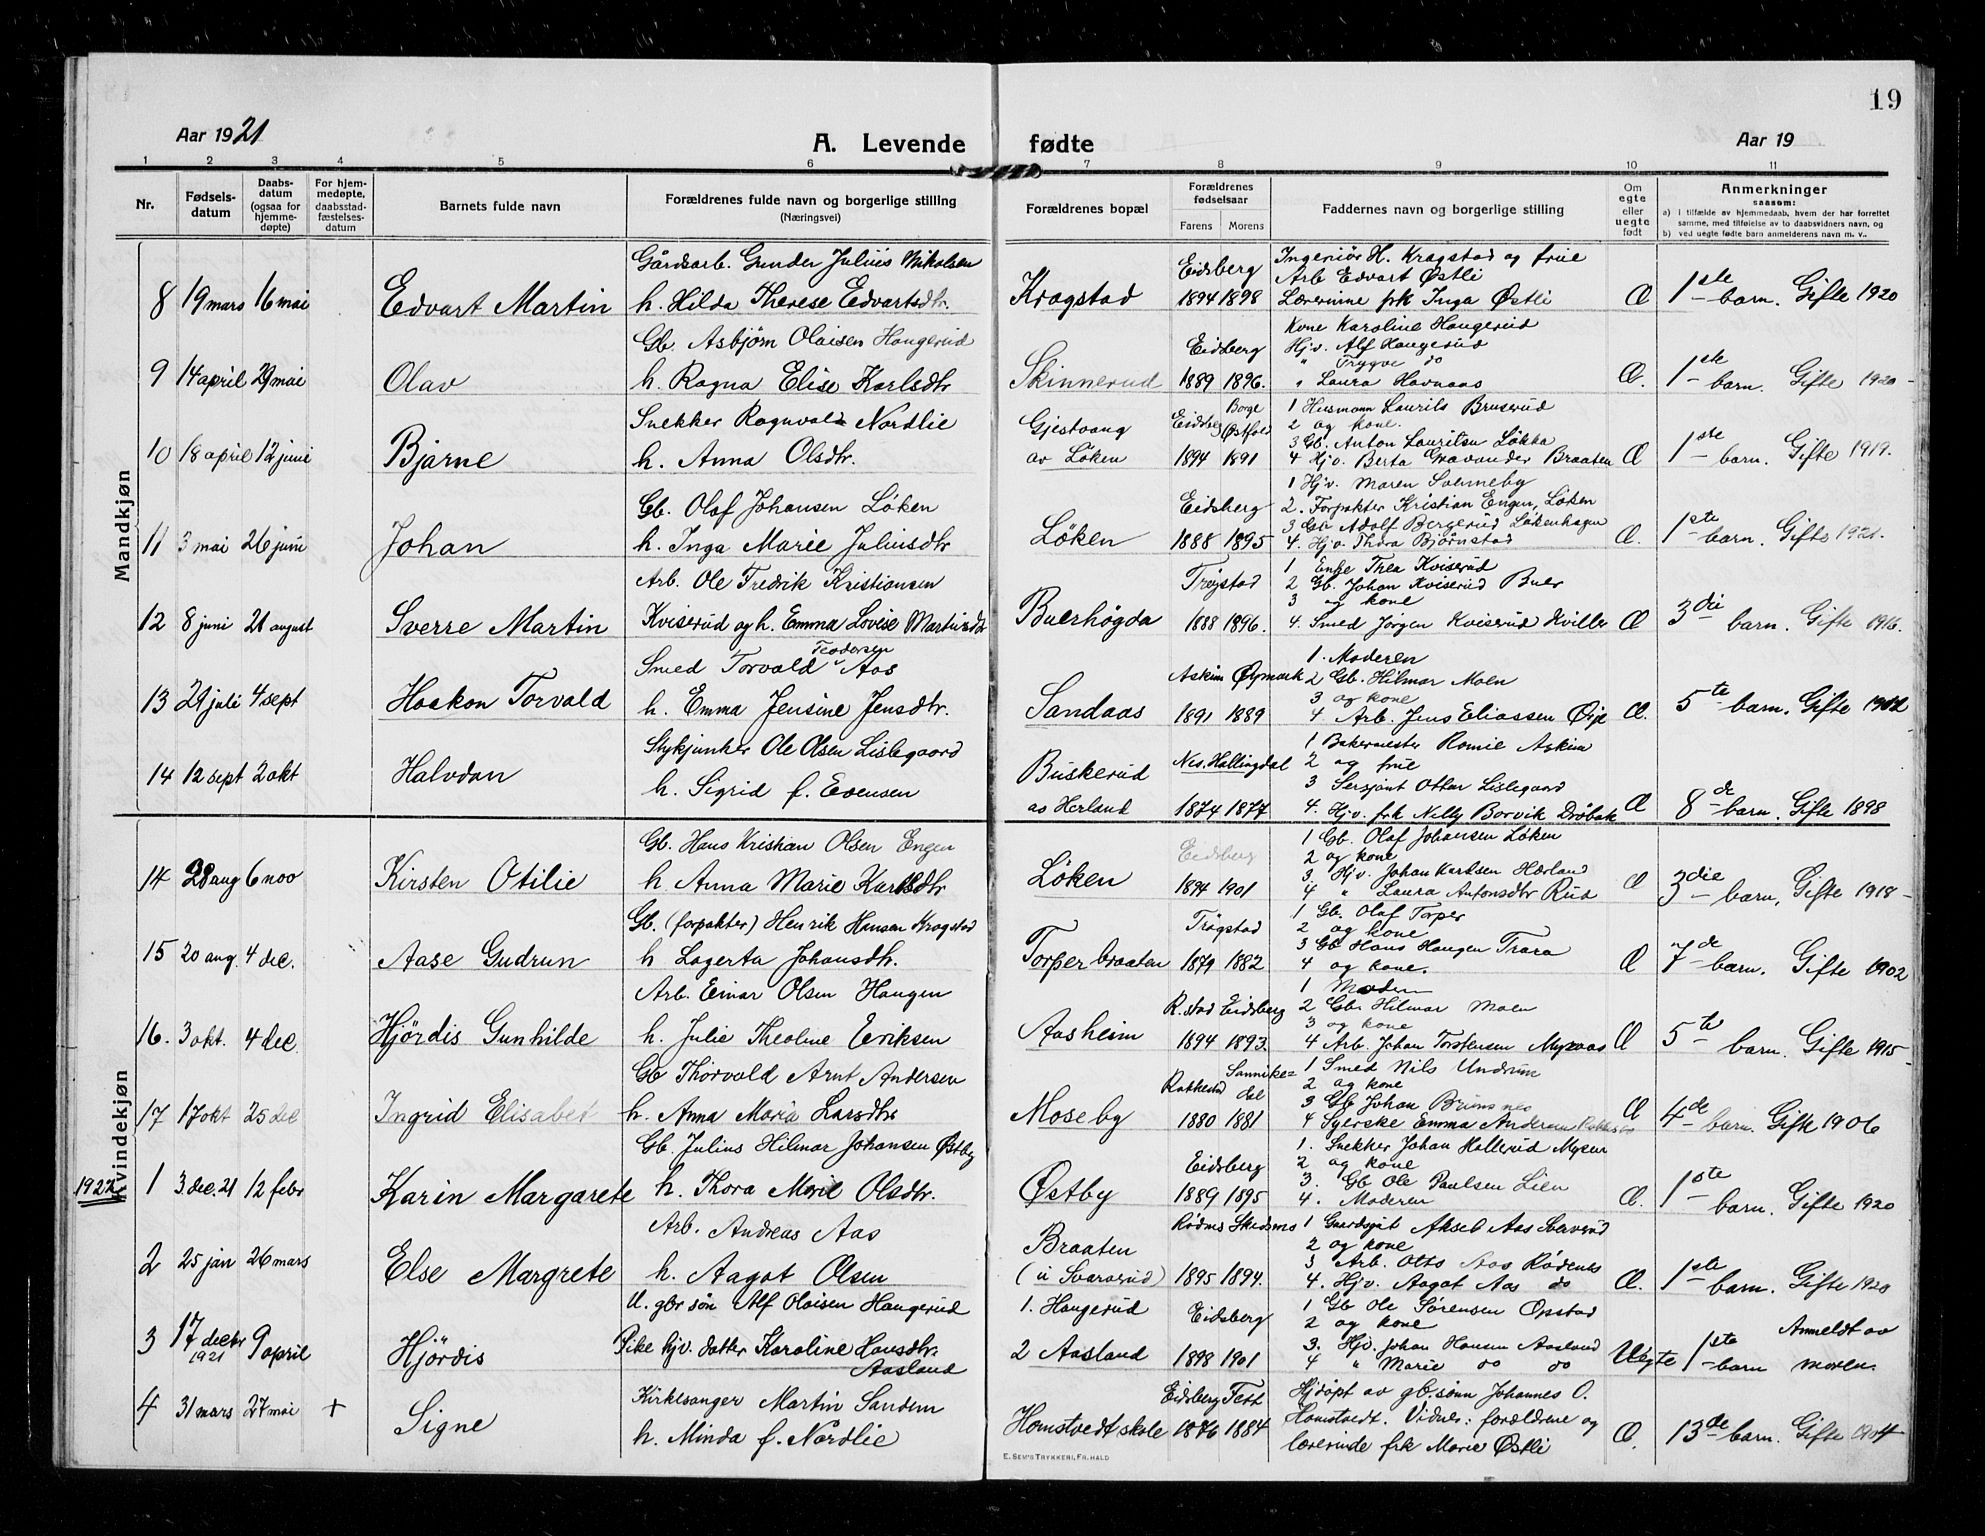 19
Aar 1921
A. Levende fødte
Aar 19
1 2 3 4 5 6 7 8 9 10 11
Nr.
Fødsels-
datum
Daabs-
datum
(ogsaa for
hjemme-
døpte)
For hjem-
medøpte,
daabsstad-
fæstelses-
datum
Barnets fulde navn
Forældrenes fulde navn og borgerlige stilling
(Næringsvei)
Forældrenes bopæl
Forældrenes
fødselsaar
Farens Morens
Faddernes navn og borgerlige stilling
Om
egte
eller
uegte
født
Anmerkninger
saasom:
a) i tilfælde av hjemmedaab, hvem der har forrettet
samme, med tilføielse av to daabsvidners navn, og
b) ved uegte fødte barn anmelderens navn m. v.
Mandkjøn
Gårdsarb. Gunder Julius Nikolsen Eidsberg Ingeniør H. Kragstad og frue
Arb Edvart Østli
8 19 mars 16 mai Edvart Martin h. Hilda Therese Edvartsdtr. Kragstad 1894 1898 Lærerinne frk Inga Østli Æ 1ste barn. Gifte 1920
Gb. Asbjørn Olaisen Haugerud Kone Karoline Haugerud
Eidsberg Hjv. Alf Haugerud
" Trygve do
9 14 april 29 mai Olav h. Ragna Elise Karlsdtr Skinnerud 1889 1896. " Laura Havnaas Æ. 1ste barn. Gifte 1920
Snekker Ragnvald Nordlie Gjestvang Eidsbg Borge Østfold 1 Husmann Laurits Bruserud
2 og kone.
3 Gb. Anton Lauritsen Løkka
10 18 april 12 juni Bjarne h. Anna Olsdtr. av Løken 1894 1891 4 Hjv. Berta Gravander Braaten Æ 1ste barn. Gifte 1919.
1 Hjv. Maren Svenneby
Gb. Olaf Johansen Løken Eidsberg 2. Forpakter Kristian Engen, Løken
3 Gb Adolf Bergerud Løkenhagen
11 3 mai 26 juni Johan h. Inga Marie Juliusdtr Løken 1888 1895 4. Hjv. Thora Bjørnstad Æ. 1ste barn. Gifte 1921.
Arb. Ole Fredrik Kristiansen Trøgstad 1 Enke Thea Kviserud
2 Gb. Johan Kviserud Buer
3 og kone
12 8 juni 21 august Sverre Martin Kviserud og h. Emma Lovise Martinsdtr Buerhøgda 1888 1896. 4. Smed Jørgen Kviserud Kviller Æ 3die barn. Gifte 1916.
Smed Torvald Teodorsen Aas Askim Øymark 1. Moderen
2 Gb. Hilmar Moen
3 og kone
13 24 juli 4 sept Haakon Torvald h. Emma Jensine Jensdtr. Sandaas 1891 1889 4 Arb. Jens Eliassen Æ. 5te barn. Gifte 1912
Stykjunker Ole Olsen Lislegaard Buskerud Nes. Hallingdal 1 Bakermester Romie Askim
2 og frue
3 Sersjant Ottar Lislegaard
14 12 sept 2 okt Halvdan h. Sigrid f. Evensen av Herland 1874 1877 4. Hjv. frk Nelly Borvik Drøbak Æ 8de barn. Gifte 1898
Kvindekjøn
Gb. Hans Kristian Olsen Engen Eidsberg 1 Gb. Olaf Johansen Løken
2 og kone
3. Hjv. Johan Karlsen Hærland
14 28 aug 6 nov Kirsten Otilie h. Anna Marie Karlsdtr Løken 1894 1901 4 " Laura Antonsdtr Rud Æ 3die barn, Gifte 1918
Gb. (forpakter) Henrik Hansen Kragstad Trøgstad 1 Gb. Olaf Torper
2 og kone
3 Gb Hans Haugen Trara
15 20 aug. 4 dec. Aase Gudrun h Lagerta Johansdtr. Torperbraaten 1879 1882 4 og kone. Æ 7de barn. Gifte 1902
Arb. Einar Olsen Haugen R.stad Eidsberg 1 Modern
2 Gb. Hilmar Moen
3 og kone
16. 3 okt. 4 dec. Hjørdis Gunhilde h. Julie Theoline Eriksen Aasheim 1894 1893. 4 Arb. Johan Torstensen Myraas Æ 5te barn. Gifte 1915
Gb Thorvald Arnt Andersen Rakkestad Sannikedal 1 Smed Nils Undrum
2 og kone
3 Gb Johan Brunsnes
17 17 okt 25 dec Ingrid Elisabet h. Anna Maria Larsdtr Moseby 1880 1881 4 Syerske Emma Andersen Æ 4de barn. Gifte 1906
Gb. Julius Hilmar Johansen Østby Eidsberg 1. Snekker Johan Hallerud Mysen
2 og kone
3. Gb Ole Paulsen Lien
1922 1 3 dec. 21 12 febr Karin Margarete h. Thora Marie Olsdtr. Østby 1889 1895 4. Moderen Æ. 1ste barn. Gifte 1920
Arb. Andreas Aas Braaten Rødnes Skedsmo 1 Gaardsgut Aksel Aas Svarverud
2 og kone
3 Arb. Otto Aas Rødenes
2 25 jan 26 mars Else Margrete h. Aagot Olsen (u Svarverud) 1895 1894. 4. Hjv. Aagot Aas do Æ. 1ste barn. Gifte 1920
U. gbr søn Alf Olaisen Haugerud 1. Haugerud Eidsberg 1 Gb Ole Sørensen Opstad
2 og kone
3 17 decbr 1921 9 april Hjördis Pike hjv. datter Karoline Hansdtr. Aasland 2 Aasland 1898 1901 3. Hjv. Johan Hansen Aasland
4 " Marie do do Uegte 1ste barn Anmeldt av moren.
Kirkesanger Martin Sandem Eidsberg Tett Hjdøpt av gb.sønn Johannes O.
4 31 mars 27 mai + Signe h. Minda f. Nordlie Homstvedt skole 1876 1884 Homstvedt. Vidner: forældrene og
lærerinde frk Marie Østli Æ. 13de barn. Gifte 1904
E. SEM'S TRYKKERI, FR.HALD